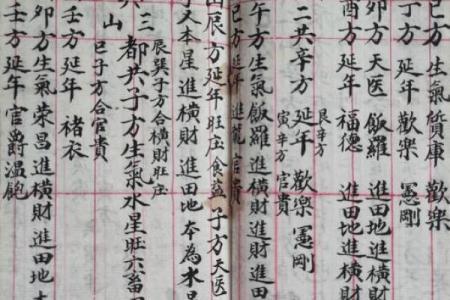 巳方生氣質庫　歡樂
丁方　延年　歡樂　憲剛
卯方天医　飯羅　進田地進橫財
酉方　延年　福德　進田地進橫
二共辛方　艮辛方　延年　寅辛方　歡樂　官貴　憲剛
午方生氣飯羅進橫財進田
己方延年　進龍官貴
辰方延年旺庄食　子方天医
又本星進橫財進田地本為水星
辰巽子方合橫財旺庄
三都共子方生氣水星旺六畜田
山　巳子方合官貴
壬方延年　褚衣
卯方生氣榮昌進橫財進田地
壬方延年官爵溫飽